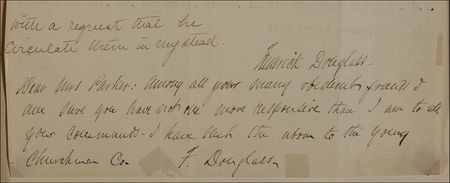 with a request that he
circulate them in my stead.
Fredrick Douglass -
Dear Mrs Parker: Among all your many obedient friends I
am sure you have not one more responsive than I am to all
your commands - I have sent the above to the young
Churchman Co F. Douglass